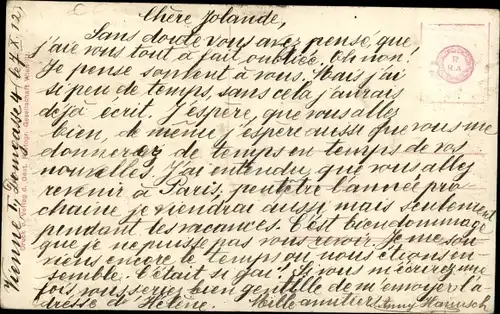 Chère Jolande,
Sans doute vous avez pensé, que
j'aie vous tout à fait oubliée. Oh non!
Je pense souvent à vous. Mais j'ai
si peu de temps, sans cela j'aurais
déjà écrit. J'espère, que vous allez
bien, de même j'espère aussi que vous me
donnerez de temps en temps de vos
nouvelles. J'ai entendu que vous allez
revenir à Paris, peutêtre l'année pro
chaine je viendrai aussi, mais seulement
pendant les vacances. C'est bien dommage
que je ne puisse pas vous revoir. Je me sou
viens encore le temps où nous étions en-
semble. C'était si gai! Si vous m'écrivez une
fois vous seriez bien gentille de m'envoyer l'a
dresse d'Hélène. Mille amitiers
Anny Hanusch
Vienne 4. Domgasse 4. 7. X. 12.